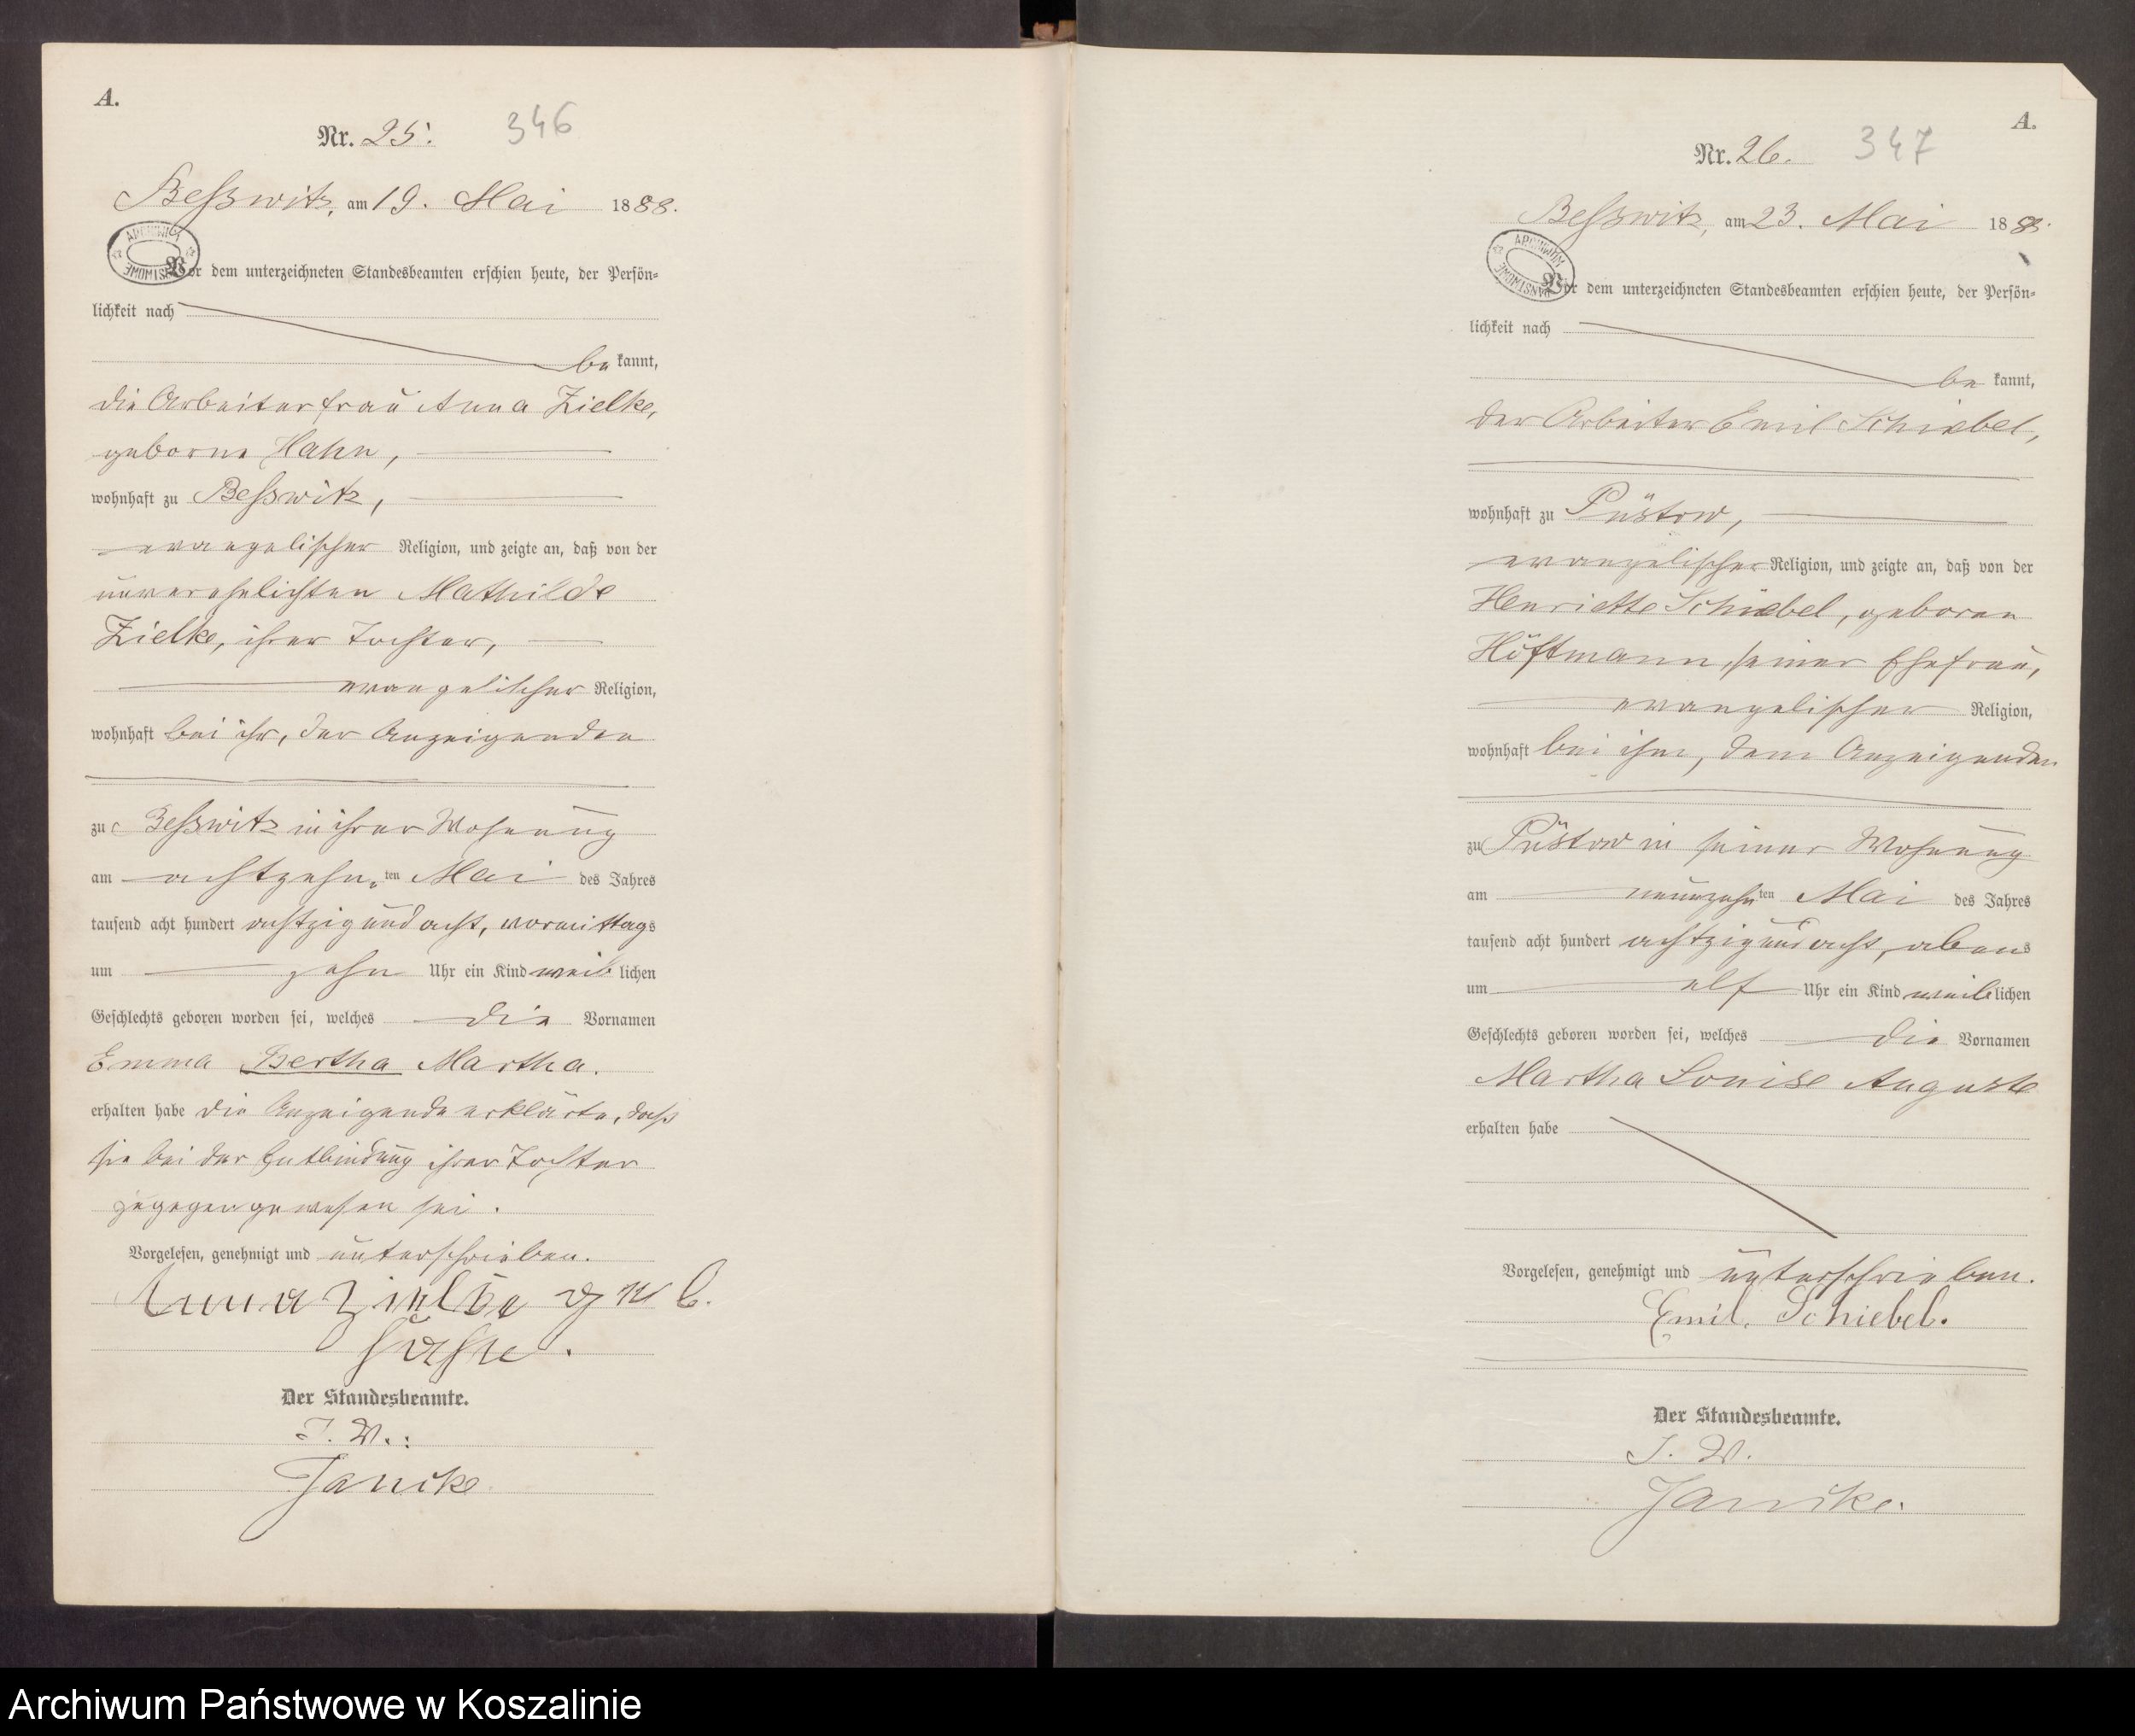 A.
Nr. 25. 346
Besswitz, am 19. Mai 1888.
ARCHIWUM
Vor dem unterzeichneten Standesbeamten erschien heute, der Persön-
lichkeit nach
be kannt,
die Arbeiterfrau Anna Zielke,
geborne Hahn,
wohnhaft zu Besswitz,
evangelischer Religion, und zeigte an, daß von der
unverehelichten Mathilde
Zielke, ihrer Tochter,
evangelischer Religion,
wohnhaft bei ihr, der Anzeigenden
zu Besswitz in ihrer Wohnung
am achtzehn ten Mai des Jahres
tausend acht hundert achtzig und acht, vormittags
um zehn Uhr ein Kind weib lichen
Geschlechts geboren worden sei, welches die Vornamen
Emma Bertha Martha.
erhalten habe die Anzeigende erklärte, daß
sie bei der Entbindung ihrer Tochter
zugegen gewesen sei.
Vorgelesen, genehmigt und unterschrieben.
Anna Zielke
Der Standesbeamte.
I. V.:
Jancke
A.
Nr. 26. 347
Besswitz, am 23. Mai 1888.
ARCHIWUM
Vor dem unterzeichneten Standesbeamten erschien heute, der Persön-
lichkeit nach
be kannt,
der Arbeiter Emil Schiebel,
wohnhaft zu Püstow,
evangelischer Religion, und zeigte an, daß von der
Henriette Schiebel, geboren
Höftmann, seiner Ehefrau,
evangelischer Religion,
wohnhaft bei ihm, dem Anzeigenden
zu Püstow in seiner Wohnung
am neunzehn ten Mai des Jahres
tausend acht hundert achtzig und acht, abens
um elf Uhr ein Kind weib lichen
Geschlechts geboren worden sei, welches die Vornamen
Martha Louise Auguste
erhalten habe
Vorgelesen, genehmigt und unterschrieben.
Emil Schiebel.
Der Standesbeamte.
I. V.
Jancke.
Archiwum Państwowe w Koszalinie